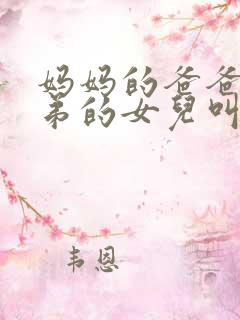 妈妈的爸爸
弟的女兒叫
韦恩